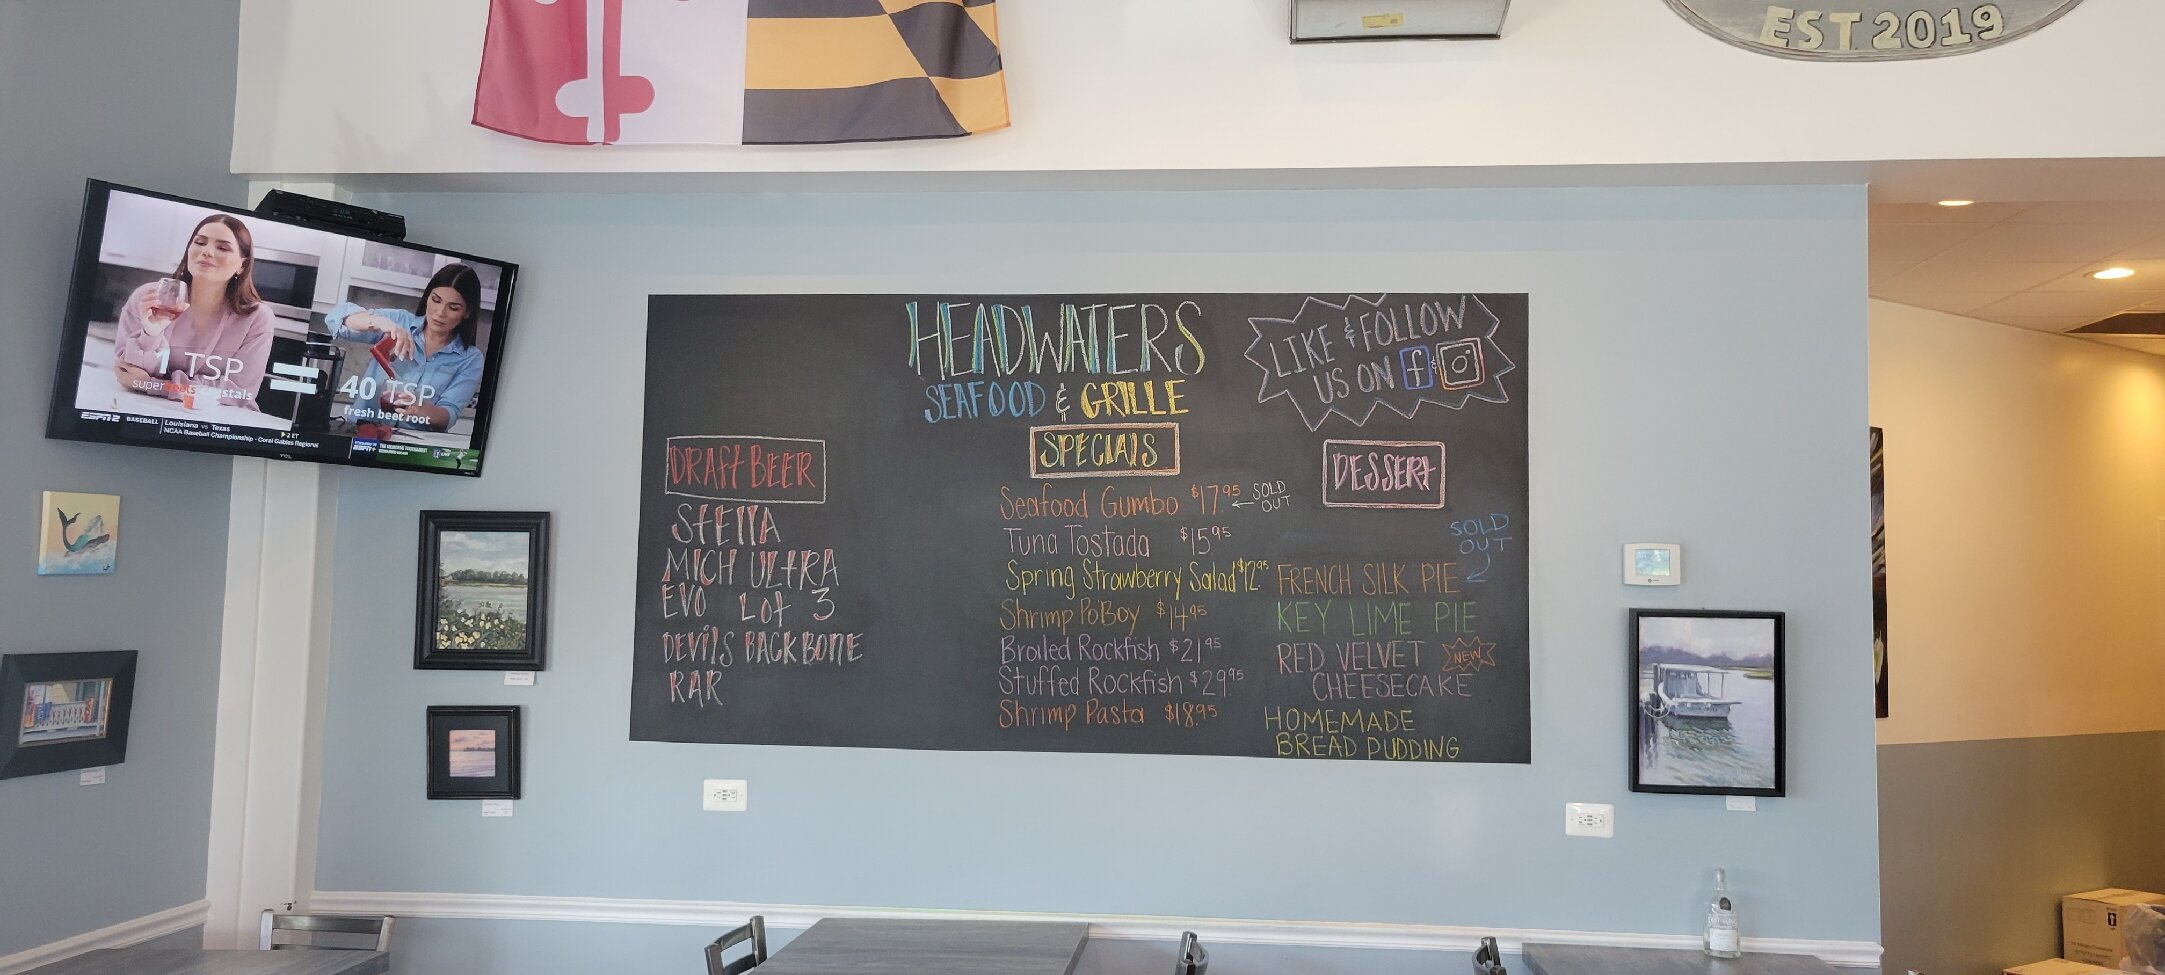 EST 2019
1 TSP
40 TSP
fresh beet root
ESPN2 BASEBALL Louisiana vs Texas
2 ET
NCAA Baseball Championship - Coral Gables Regional
TCL
HEADWATERS
SEAFOOD & GRILLE
LIKE & FOLLOW
US ON f &
DRAFT BEER
STELLA
MICH ULTRA
EVO LOT 3
DEVILS BACKBONE
RAR
SPECIALS
Seafood Gumbo $17.95 ← SOLD OUT
Tuna Tostada $15.95
Spring Strawberry Salad $12.95
Shrimp PoBoy $14.95
Broiled Rockfish $21.95
Stuffed Rockfish $29.95
Shrimp Pasta $18.95
DESSERT
SOLD
OUT
FRENCH SILK PIE
KEY LIME PIE
RED VELVET NEW
CHEESECAKE
HOMEMADE
BREAD PUDDING